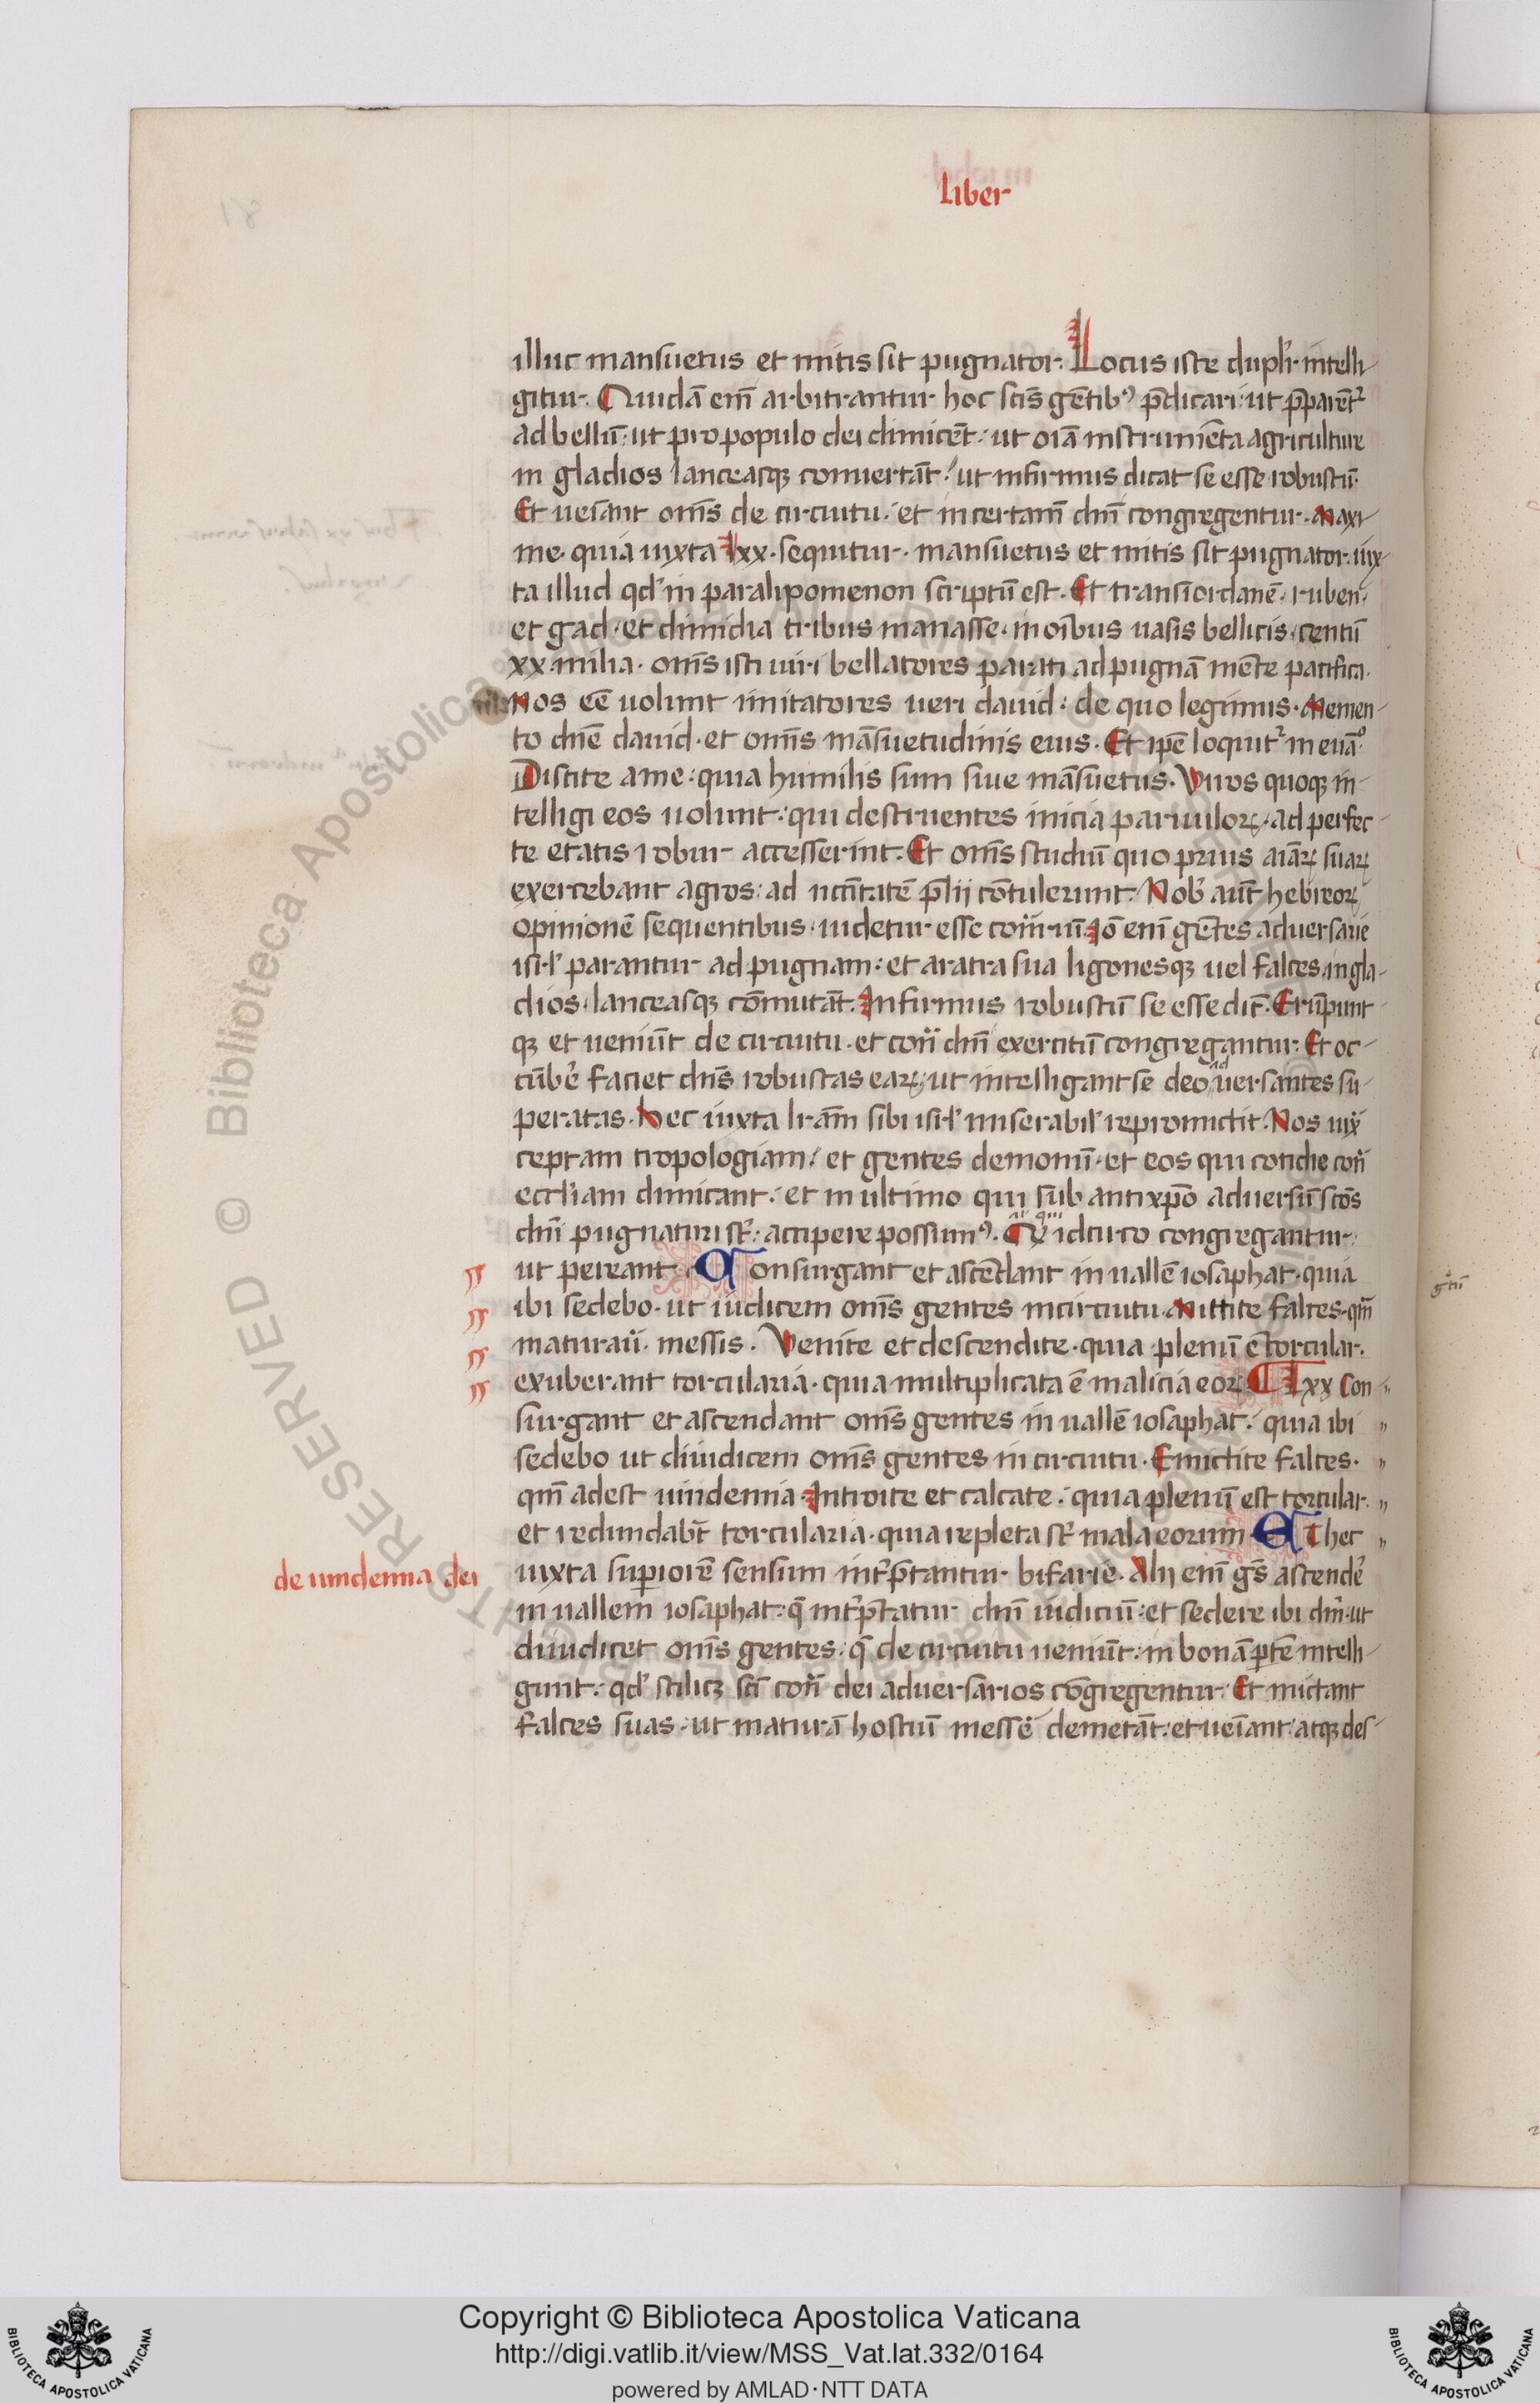 liber
illuc mansuetus et mitis sit pugnator. Locus iste duplr̄ intelli
gitur. Quidā em̄ arbitrantur hoc scīs gētibꝰ p̄dicari: ut p̄parēt᷑
ad bellū: ut pro populo dei dimicēt: ut oīa instrumēta agriculture
in gladios lanceasqꝫ conuertāt: ut infirmus dicat se esse robustū.
Et ueīant om̄s de circuitu: et in certam̄ dn̄i congregentur. Maxi
me quia iuxta lxx. sequitur. mansuetus et mitis sit pugnator. iux
ta illud qd̓ in paralipomenon scriptū est. Et transiordanē. ruben.
et gad. et dimidia tribus manasse. in oībus uasis bellicis. centū
xx. milia. om̄s isti uiri bellatores parati ad pugnā mēte pacifica.
Nos eē uolunt imitatores ueri dauid: de quo legimus. Memen
to dn̄e dauid. et om̄is māsuetudinis eius. Et ip̄e loquit᷑ in euāᵒ.
Discite a me: quia humilis sum siue māsuetus. Viros quoqꝫ in
telligi eos uolunt: qui destruentes inicia paruulorꝝ. ad perfec
te etatis robur accesserint. Et om̄e studiū quo prius aīarꝝ suarꝝ
exercebant agros: ad uirtutē p̄lij cōtulerunt. Nob̓ aūt hebreorꝝ
opinionē sequentibus. uidetur esse contrariū. Iō enī gētes aduersarie
isrl̓ parantur ad pugnam: et aratra sua ligonesqꝫ uel falces in gla
dios. lanceasqꝫ cōmutāt. Infirmus robustū se esse dic̄. Erūpunt
qꝫ et ueniūt de circuitu. et contra dn̄i exercitū congregantur. Et oc
cūbe᷑ faciet dn̄s robustas earꝝ: ut intelligant se deo aduersantes su
peratas. Hec iuxta lr̄am sibi isrl̓ miserabil̓r repromictit. Nos iux
ceptam tropologiam: et gentes demoniū. et eos qui cotidie contra
eccl̄iam dimicant: et in ultimo qui sub antixp̄o aduersū scōs
dn̄i pugnaturi st̄: accipere possumꝰ. Qui idcirco congregantur:
ut pereant. Consurgant et ascēdant in uallē iosaphat. quia
ibi sedebo. ut iudicem om̄s gentes in circuitu. Mittite falces. qm̄
maturauit messis. Venite et descendite. quia plenū ē torcular.
exuberant torcularia. quia multiplicata ē malicia eorꝝ. lxx Con
surgant et ascendant om̄s gentes in uallē iosaphat: quia ibi
sedebo ut diiudicem om̄s gentes in circuitu. Emictite falces.
qm̄ adest uindemia. Introite et calcate: quia plenū est torcular.
et redundabt̄ torcularia. quia repleta st̄ mala eorum. Et hec
de uindemia dei
iuxta superiorē sensum int̓p̄tantur bifarie. Alij enī gēs ascende᷑
in uallem iosaphat: q̄ int̓p̄tatur dn̄i iudiciū: et sedere ibi dn̄m. ut
diiudicet om̄s gentes: q̄ de circuitu ueniūt: in bonā ptē intelli
gunt: qd̓ scilicꝫ scī contra dei aduersarios cōgregentur. Et mictant
falces suas. ut maturā hostiū messē demetāt: et ueīant: atqꝫ des
Copyright © Biblioteca Apostolica Vaticana
http://digi.vatlib.it/view/MSS_Vat.lat.332/0164
powered by AMLAD·NTT DATA